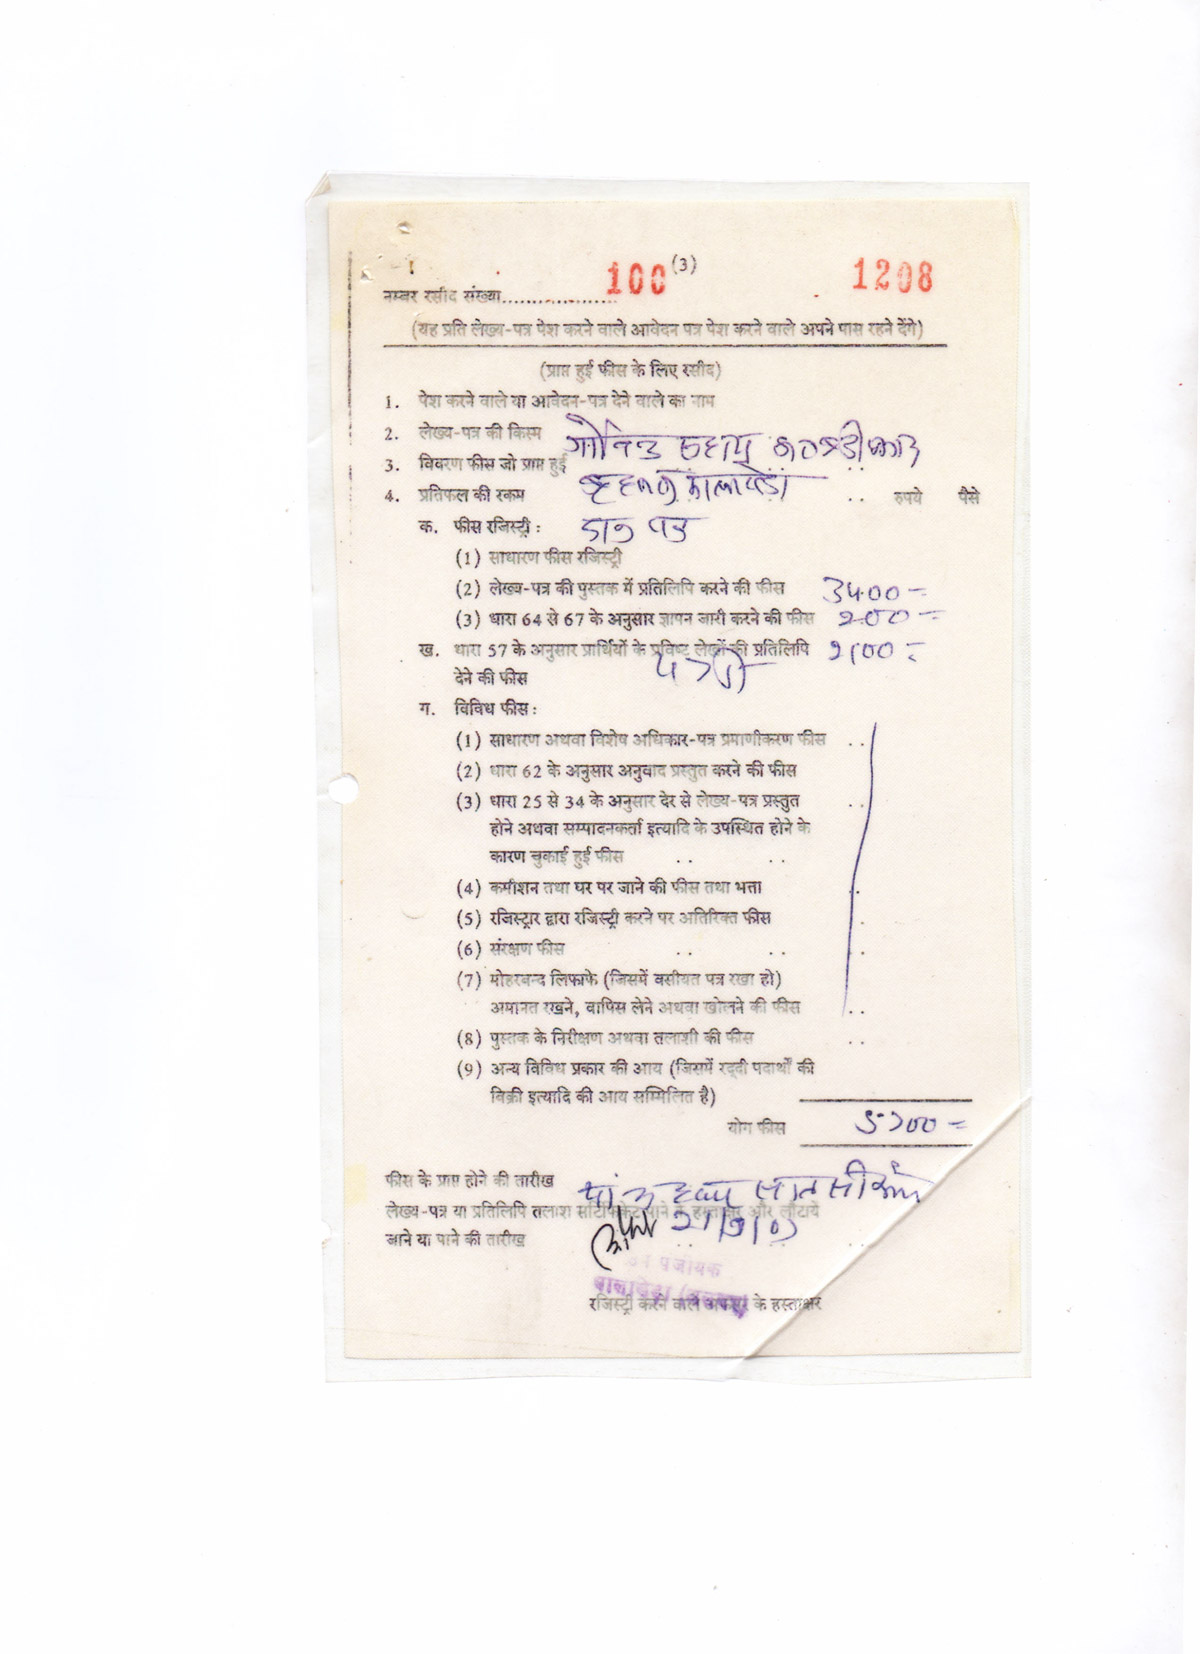 100 (3) 1208
नम्बर रसीद संख्या...................
(यह प्रति लेख्य-पत्र पेश करने वाले आवेदन पत्र पेश करने वाले अपने पास रहने देंगे)
(प्राप्त हुई फीस के लिए रसीद)
1. पेश करने वाले या आवेदन-पत्र देने वाले का नाम
2. लेख्य-पत्र की किस्म
गोविन्द सहाय
3. विवरण फीस जो प्राप्त हुई
4. प्रतिफल की रकम .. रुपये पैसे
क. फीस रजिस्ट्री :
(1) साधारण फीस रजिस्ट्री
(2) लेख्य-पत्र की पुस्तक में प्रतिलिपि करने की फीस
(3) धारा 64 से 67 के अनुसार ज्ञापन जारी करने की फीस 200=
ख. धारा 57 के अनुसार प्रार्थियों के प्रविष्ट लेखों की प्रतिलिपि
देने की फीस
ग. विविध फीस :
(1) साधारण अथवा विशेष अधिकार-पत्र प्रमाणीकरण फीस ..
(2) धारा 62 के अनुसार अनुवाद प्रस्तुत करने की फीस
(3) धारा 25 से 34 के अनुसार देर से लेख्य-पत्र प्रस्तुत ..
होने अथवा सम्पादनकर्ता इत्यादि के उपस्थित होने के
कारण चुकाई हुई फीस .. ..
(4) कमीशन तथा घर पर जाने की फीस तथा भत्ता
(5) रजिस्ट्रार द्वारा रजिस्ट्री करने पर अतिरिक्त फीस
(6) संरक्षण फीस .. ..
(7) मोहरबन्द लिफाफे (जिसमें वसीयत पत्र रखा हो)
अमानत रखने, वापिस लेने अथवा खोलने की फीस ..
(8) पुस्तक के निरीक्षण अथवा तलाशी की फीस ..
(9) अन्य विविध प्रकार की आय (जिसमें रद्दी पदार्थों की
विक्री इत्यादि की आय सम्मिलित है)
योग फीस 5700=
फीस के प्राप्त होने की तारीख
लेख्य-पत्र या प्रतिलिपि तलाश सर्टिफिकेट पाने के हस्ताक्षर और लौटाये
जाने या पाने की तारीख
रजिस्ट्री करने वाले अफसर के हस्ताक्षर